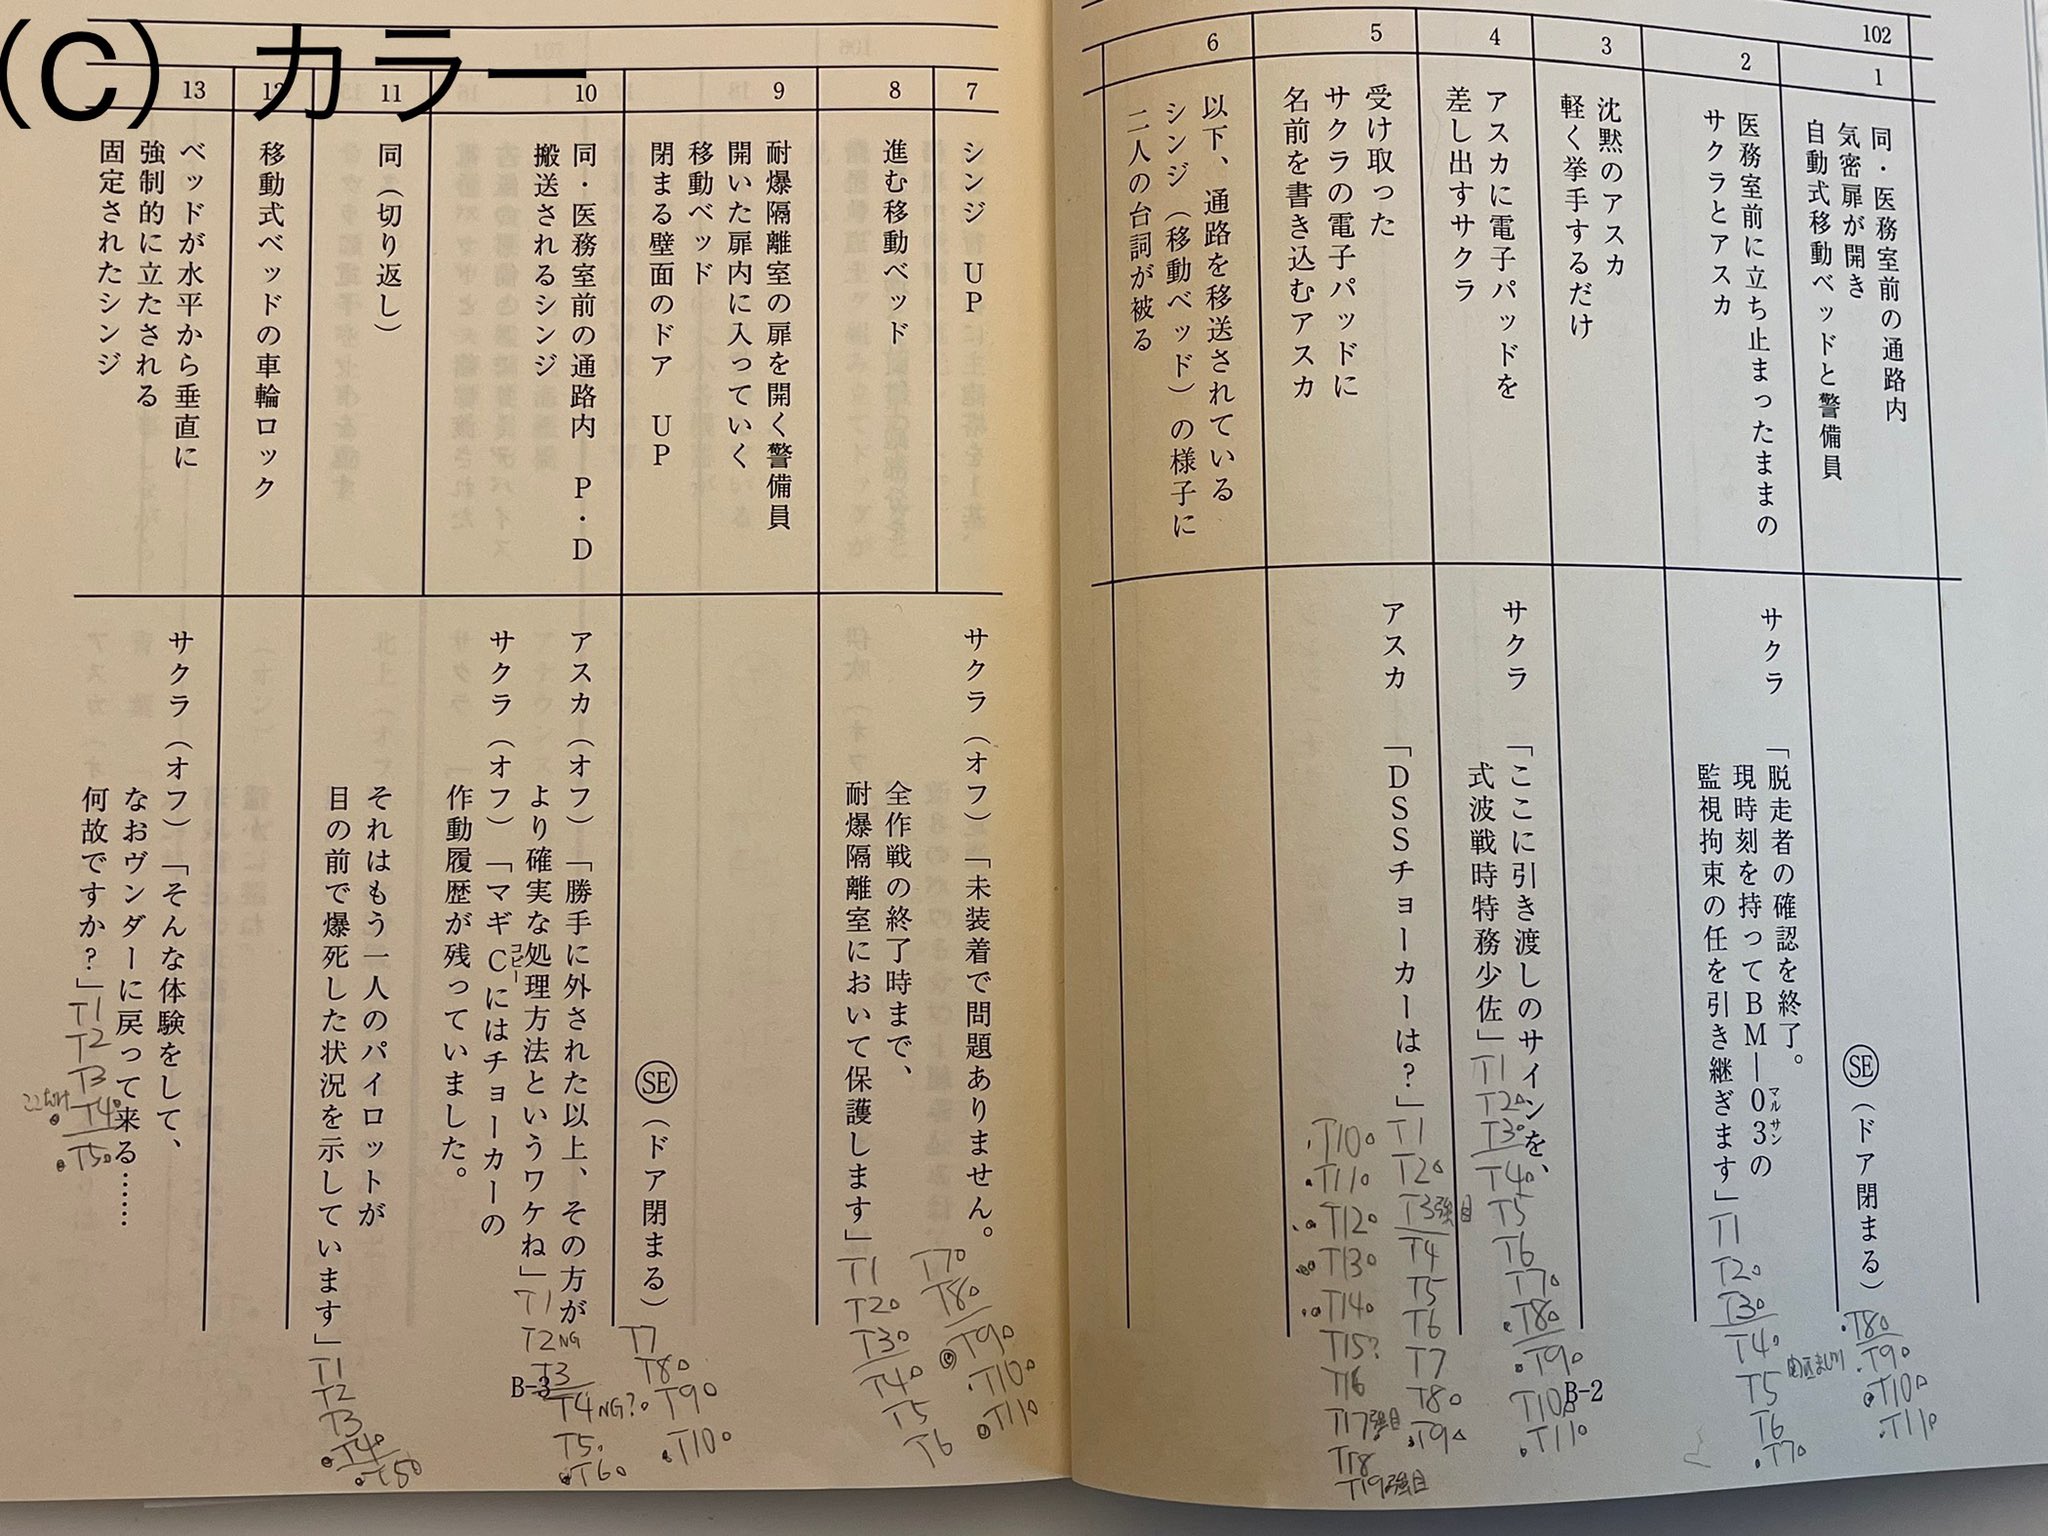 (C) カラー
102
1
同・医務室前の通路内
気密扉が開き
自動式移動ベッドと警備員
SE（ドア閉まる）
T8
T9
T10
T11
2
医務室前に立ち止まったままの
サクラとアスカ
サクラ
「脱走者の確認を終了。
現時刻を持ってＢＭ―０３の
マルサン
監視拘束の任を引き継ぎます」
T1
T2
T3
T4
T5
T6
T7
3
沈黙のアスカ
軽く挙手するだけ
4
アスカに電子パッドを
差し出すサクラ
サクラ
「ここに引き渡しのサインを、
式波戦時特務少佐」
T1
T2
T3
T4
T5
T6
T7
T8
T9
T10
T11
5
受け取った
サクラの電子パッドに
名前を書き込むアスカ
アスカ
「ＤＳＳチョーカーは？」
T1
T2
T3強目
T4
T5
T6
T7
T8
T9
T10
T11
T12
T13
T14
T15?
T16
T17強目
T18
T19強目
6
以下、通路を移送されている
シンジ（移動ベッド）の様子に
二人の台詞が被る
B-2
7
シンジ ＵＰ
サクラ（オフ）「未装着で問題ありません。
8
進む移動ベッド
全作戦の終了時まで、
耐爆隔離室において保護します」
T1
T2
T3
T4
T5
T6
T7
T8
T9
T10
T11
9
耐爆隔離室の扉を開く警備員
開いた扉内に入っていく
移動ベッド
閉まる壁面のドア ＵＰ
SE（ドア閉まる）
T7
T8
T9
T10
10
同・医務室前の通路内 Ｐ・Ｄ
搬送されるシンジ
アスカ（オフ）「勝手に外された以上、その方が
より確実な処理方法というワケね」
T1
T2 NG
T3
T4 NG?
T5
T6
サクラ（オフ）「マギＣにはチョーカーの
コピー
作動履歴が残っていました。
11
同（切り返し）
それはもう一人のパイロットが
目の前で爆死した状況を示しています」
T1
T2
T3
T4
T5
12
移動式ベッドの車輪ロック
13
ベッドが水平から垂直に
強制的に立たされる
固定されたシンジ
サクラ（オフ）「そんな体験をして、
なおヴンダーに戻って来る……
何故ですか？」
T1
T2
T3
T4
T5
B-3